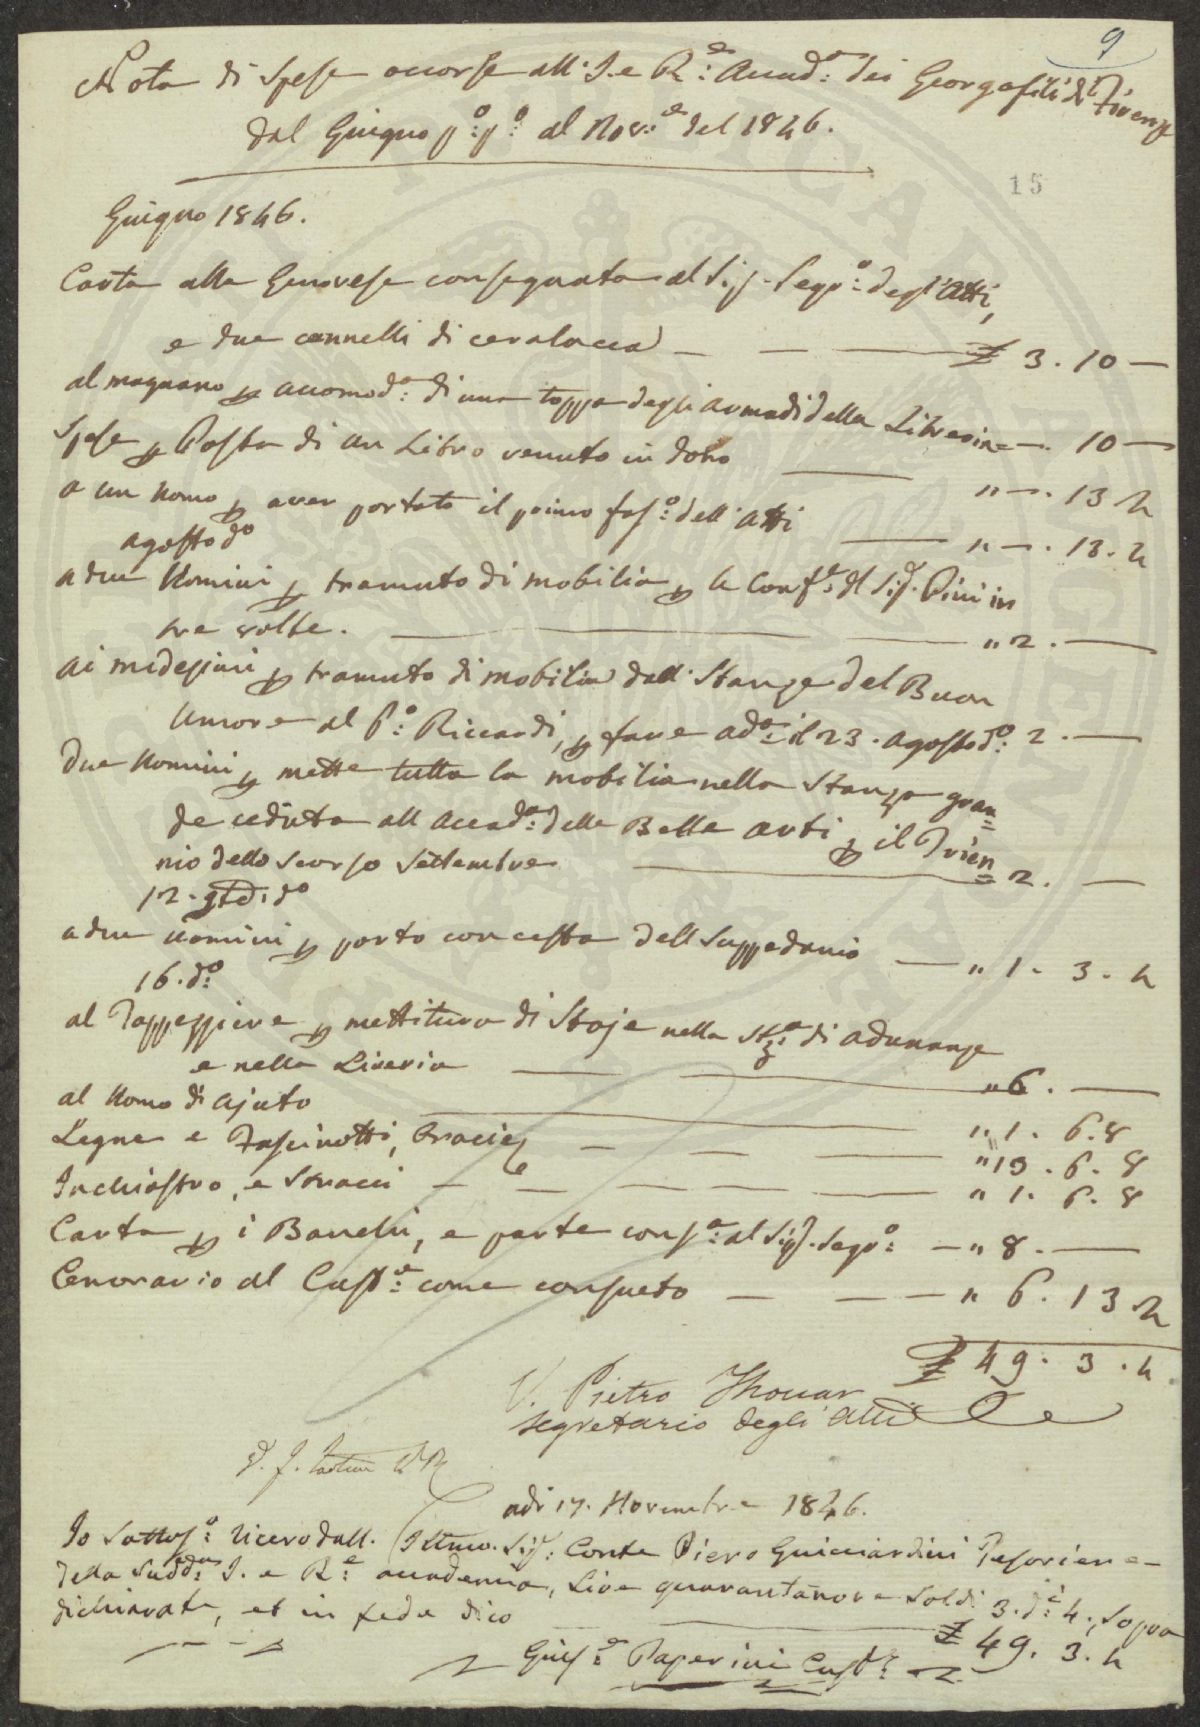 9
Nota di Spese occorse all' I. e R.e Accad.a dei Georgofili di Firenze
dal Giugno p.o p.o al Nov.e del 1846.
15
Giugno 1846.
Carta alla Genovese consegnata al Sig. Segr.o degl'Atti,
e due cannelli di ceralacca — — — £ 3. 10 —
al magnano p accomod.a di una toppa degli armadi della Libreria = —. 10 —
Spese p Posta di un Libro venuto in dono — " —. 13. 4
a un Uomo p aver portato il primo fas.o dell'Atti — " —. 13. 4
agosto d.o
a due Uomini p tramuto di mobilia p la Conf.e del Sig. Pini in
tre volte. — " 2. —
ai medesimi p tramuto di mobilia dall. Stanze del Buon
Umore al P.o Riccardi, p fare ad.a il 23. agosto d.o: 2. —
Due Uomini p mette tutta la mobilia nella Stanza gran=
de ceduta all Accad.a delle Belle arti p il Trien=
nio dello scorso Settembre — 2. —
12. d.o
a due Uomini p porto con cesta dell Suppedanio — " 1. 3. 4
16. d.o
al Tappezziere p mettitura di Stoje nella St.a di adunanze
e nella Liberia — " 6. —
al Uomo di ajuto — " 1. 6. 8
Legne e Fascinotti, Bracie — — — " 13. 6. 8
Inchiostro, e Stracci — — — — — " 1. 6. 8
Carta p i Banchi, e parte cons.a al Sig. Segr.o: — " 8. —
Lenorario al Cust.e come consueto — — — " 6. 13. 4
£ 49. 3. 4
V. Pietro Thouar
segretario degli Atti
adi 17. Novembre 1846.
Io Sottos.o ricevo dall. Illmo. Sig: Conte Piero Guicciardini Tesoriere
della Sudd.a I. e R.e accademia, Lire quarantanove Soldi 3. d.i 4., sopra
dichiarate, et in fede dico — £ 49. 3. 4
Gius.e Paperini Cust.e